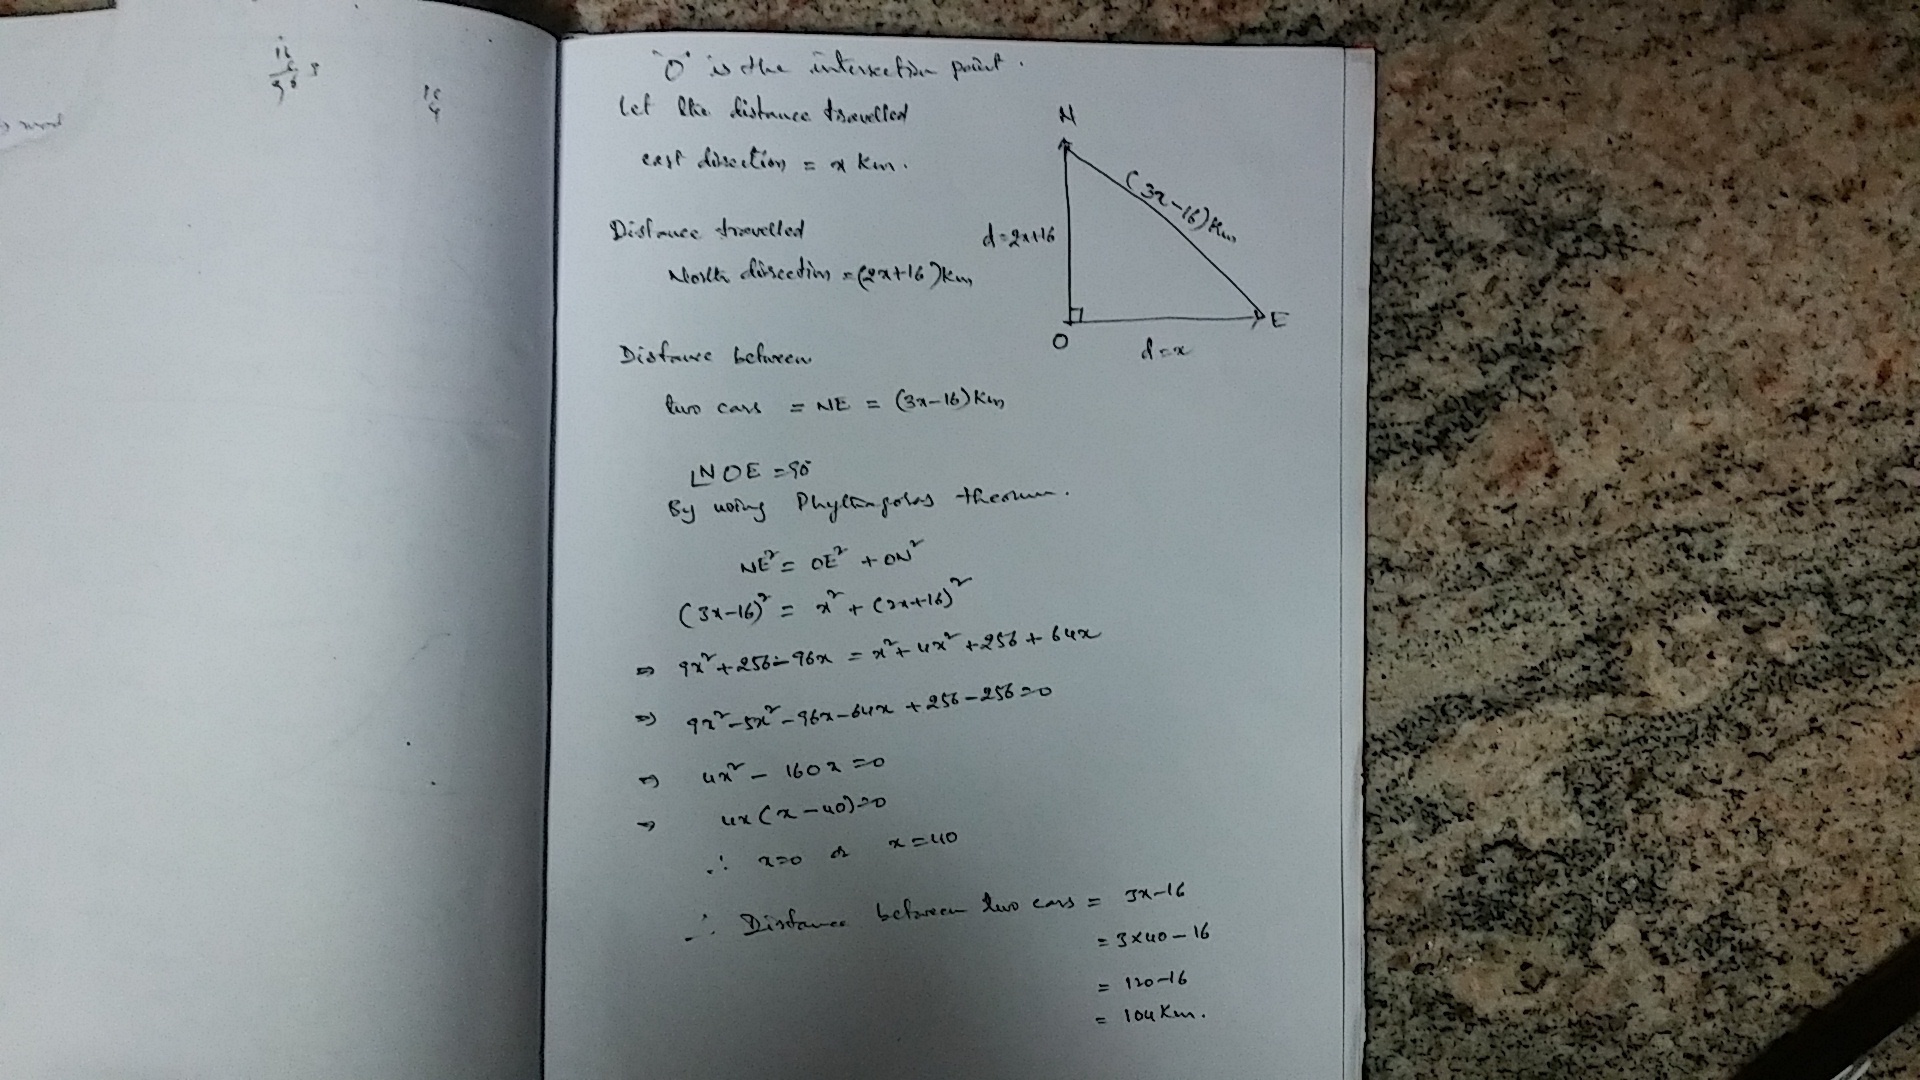 "O" is the intersection point.
Let the distance travelled
east direction = x Km.
Distance travelled
North direction = (2x+16)Km
Distance between
two cars = NE = (3x-16)Km
N
(3x-16)Km
d=2x+16
O
E
d=x
∟NOE = 90°
By using Phythagoras theorem.
NE² = OE² + ON²
(3x-16)² = x² + (2x+16)²
⇒ 9x²+256-96x = x²+4x²+256+64x
⇒ 9x²-5x²-96x-64x+256-256=0
⇒ 4x² - 160x = 0
⇒ 4x(x-40)=0
∴ x=0 or x=40
∴ Distance between two cars = 3x-16
= 3×40-16
= 120-16
= 104 Km.